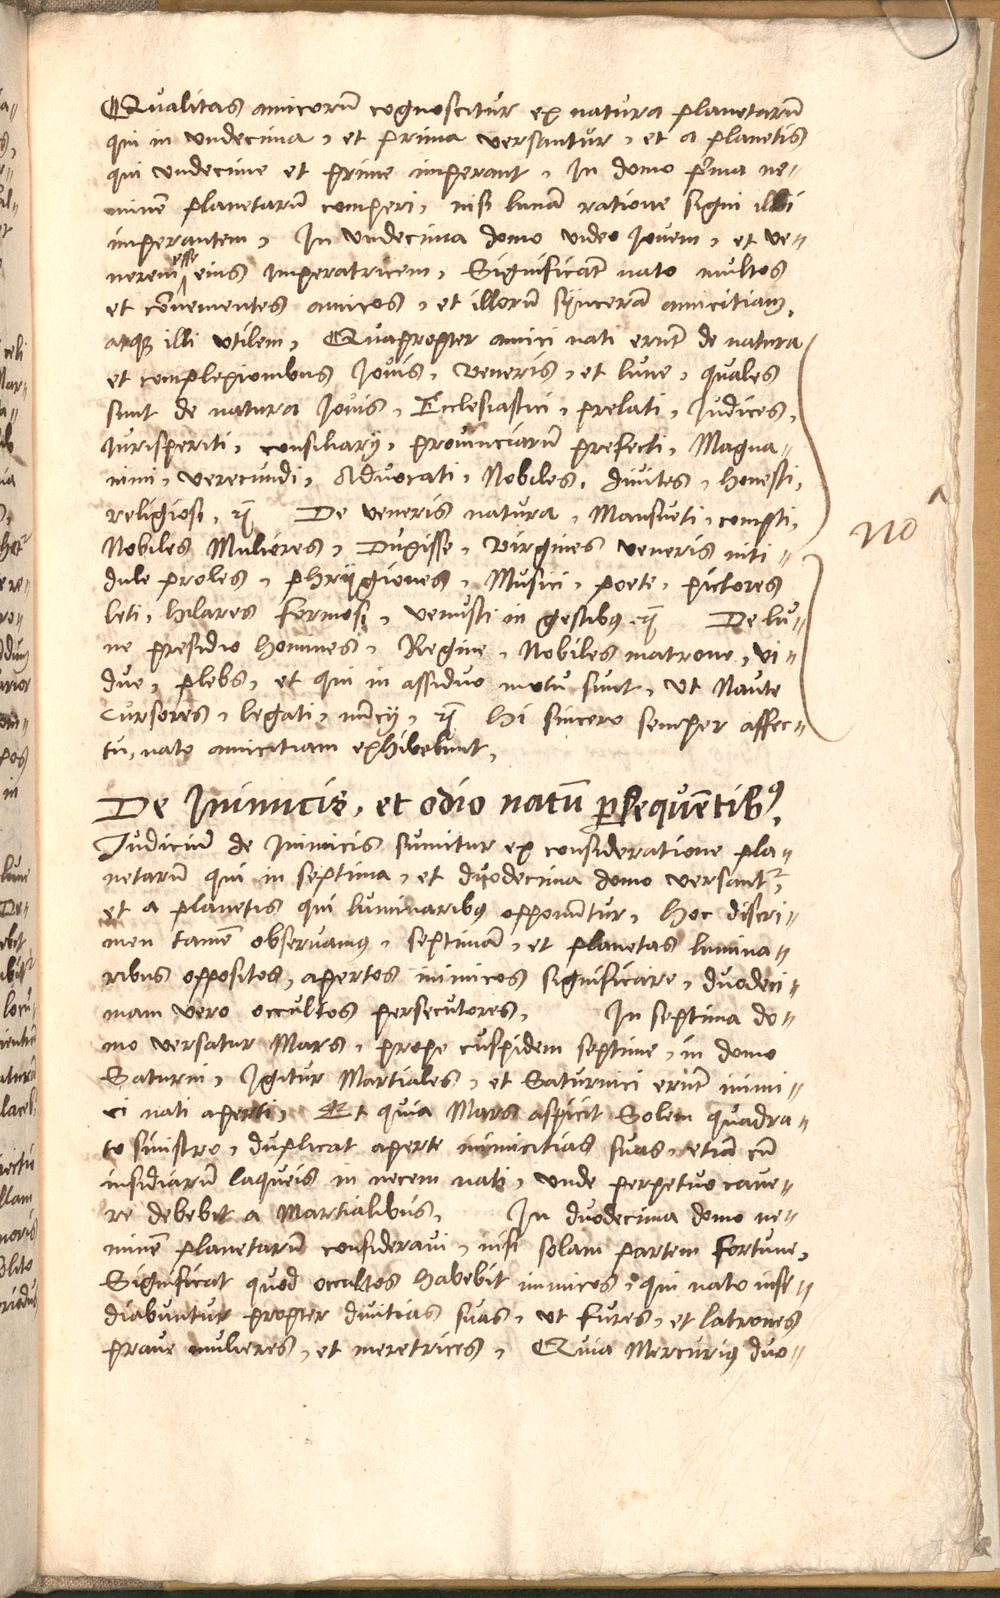 Qualitas amicorū cognoscitur ex natura planetarū
qui in vndecima, et prima versantur, et a planetis
qui vndecime et prime imperant, In domo pͥma ne⸗
minē planetarū comperi, nisi lunā ratione signi illi
imperantem, In vndecima domo video Jovem, et ve⸗
nerem esse eius imperatricem, Significāt nato multos
et cōuenientes amicos, et illorū sÿncerā amicitiam,
atqꝫ illi vtilem, Quapropter amici nati erūt de natura
et complexionibus Jovis, Veneris, et lune, quales
sunt de natura Jovis, Ecclesiastici, prelati, Judices,
Jurisperiti, consiliarÿ, prouinciarū prefecti, Magna⸗
nimi, verecundi, Advocati, Nobiles, diuites, honesti,
religiosi, ꝛc̄ De veneris natura, Mansueti, compti,
Nobiles Mulieres, Duxisse, Virgines veneris niti⸗
dule proles, phrÿgiones, Musici, poete, pictores
leti, hilares formosi, venusti in gestibꝰ ꝛc̄ De lu⸗
ne presidio homines, Regine, Nobiles matrone, vi⸗
due, plebs, et qui in assiduo motu sunt, vt Naute
Cursores, legati, nūcÿ, ꝛc̄ hi sincero semper affec⸗
tu, nato amicitiam exhibebunt,
no
De Inimicis, et odio natū ꝑsequētibꝰ,
Judiciū de Inimicis sumitur ex consideratione pla⸗
netarū qui in septima, et duodecima domo versant᷑,
et a planetis qui luminaribꝰ opponūtur, hoc discri⸗
men tamē observamꝰ, septimā, et planetas lumina⸗
ribus oppositos, apertos inimicos significare, duodeci⸗
mam vero occultos persecutores, In septima do⸗
mo versatur Mars, prope cuspidem septime, in domo
Saturni, Igitur Martiales, et Saturnici erūt inimi⸗
ci nati aperti, Et quia Mars aspicit Solem quadra⸗
to sinistro, duplicat aperte inimicitias suas, etiā cū
insidiarū laqueis in necem nati, vnde perpetuo caue⸗
re debebit a Martialibus, In duodecima domo ne⸗
minē planetarū consideravi, nisi solam partem fortune,
Significat quod occultos habebit inimicos, qui nato insi⸗
diabuntur propter diuitias suas, vt fures, et latrones
praue mulieres, et meretrices, Quia Mercuriꝰ duo⸗